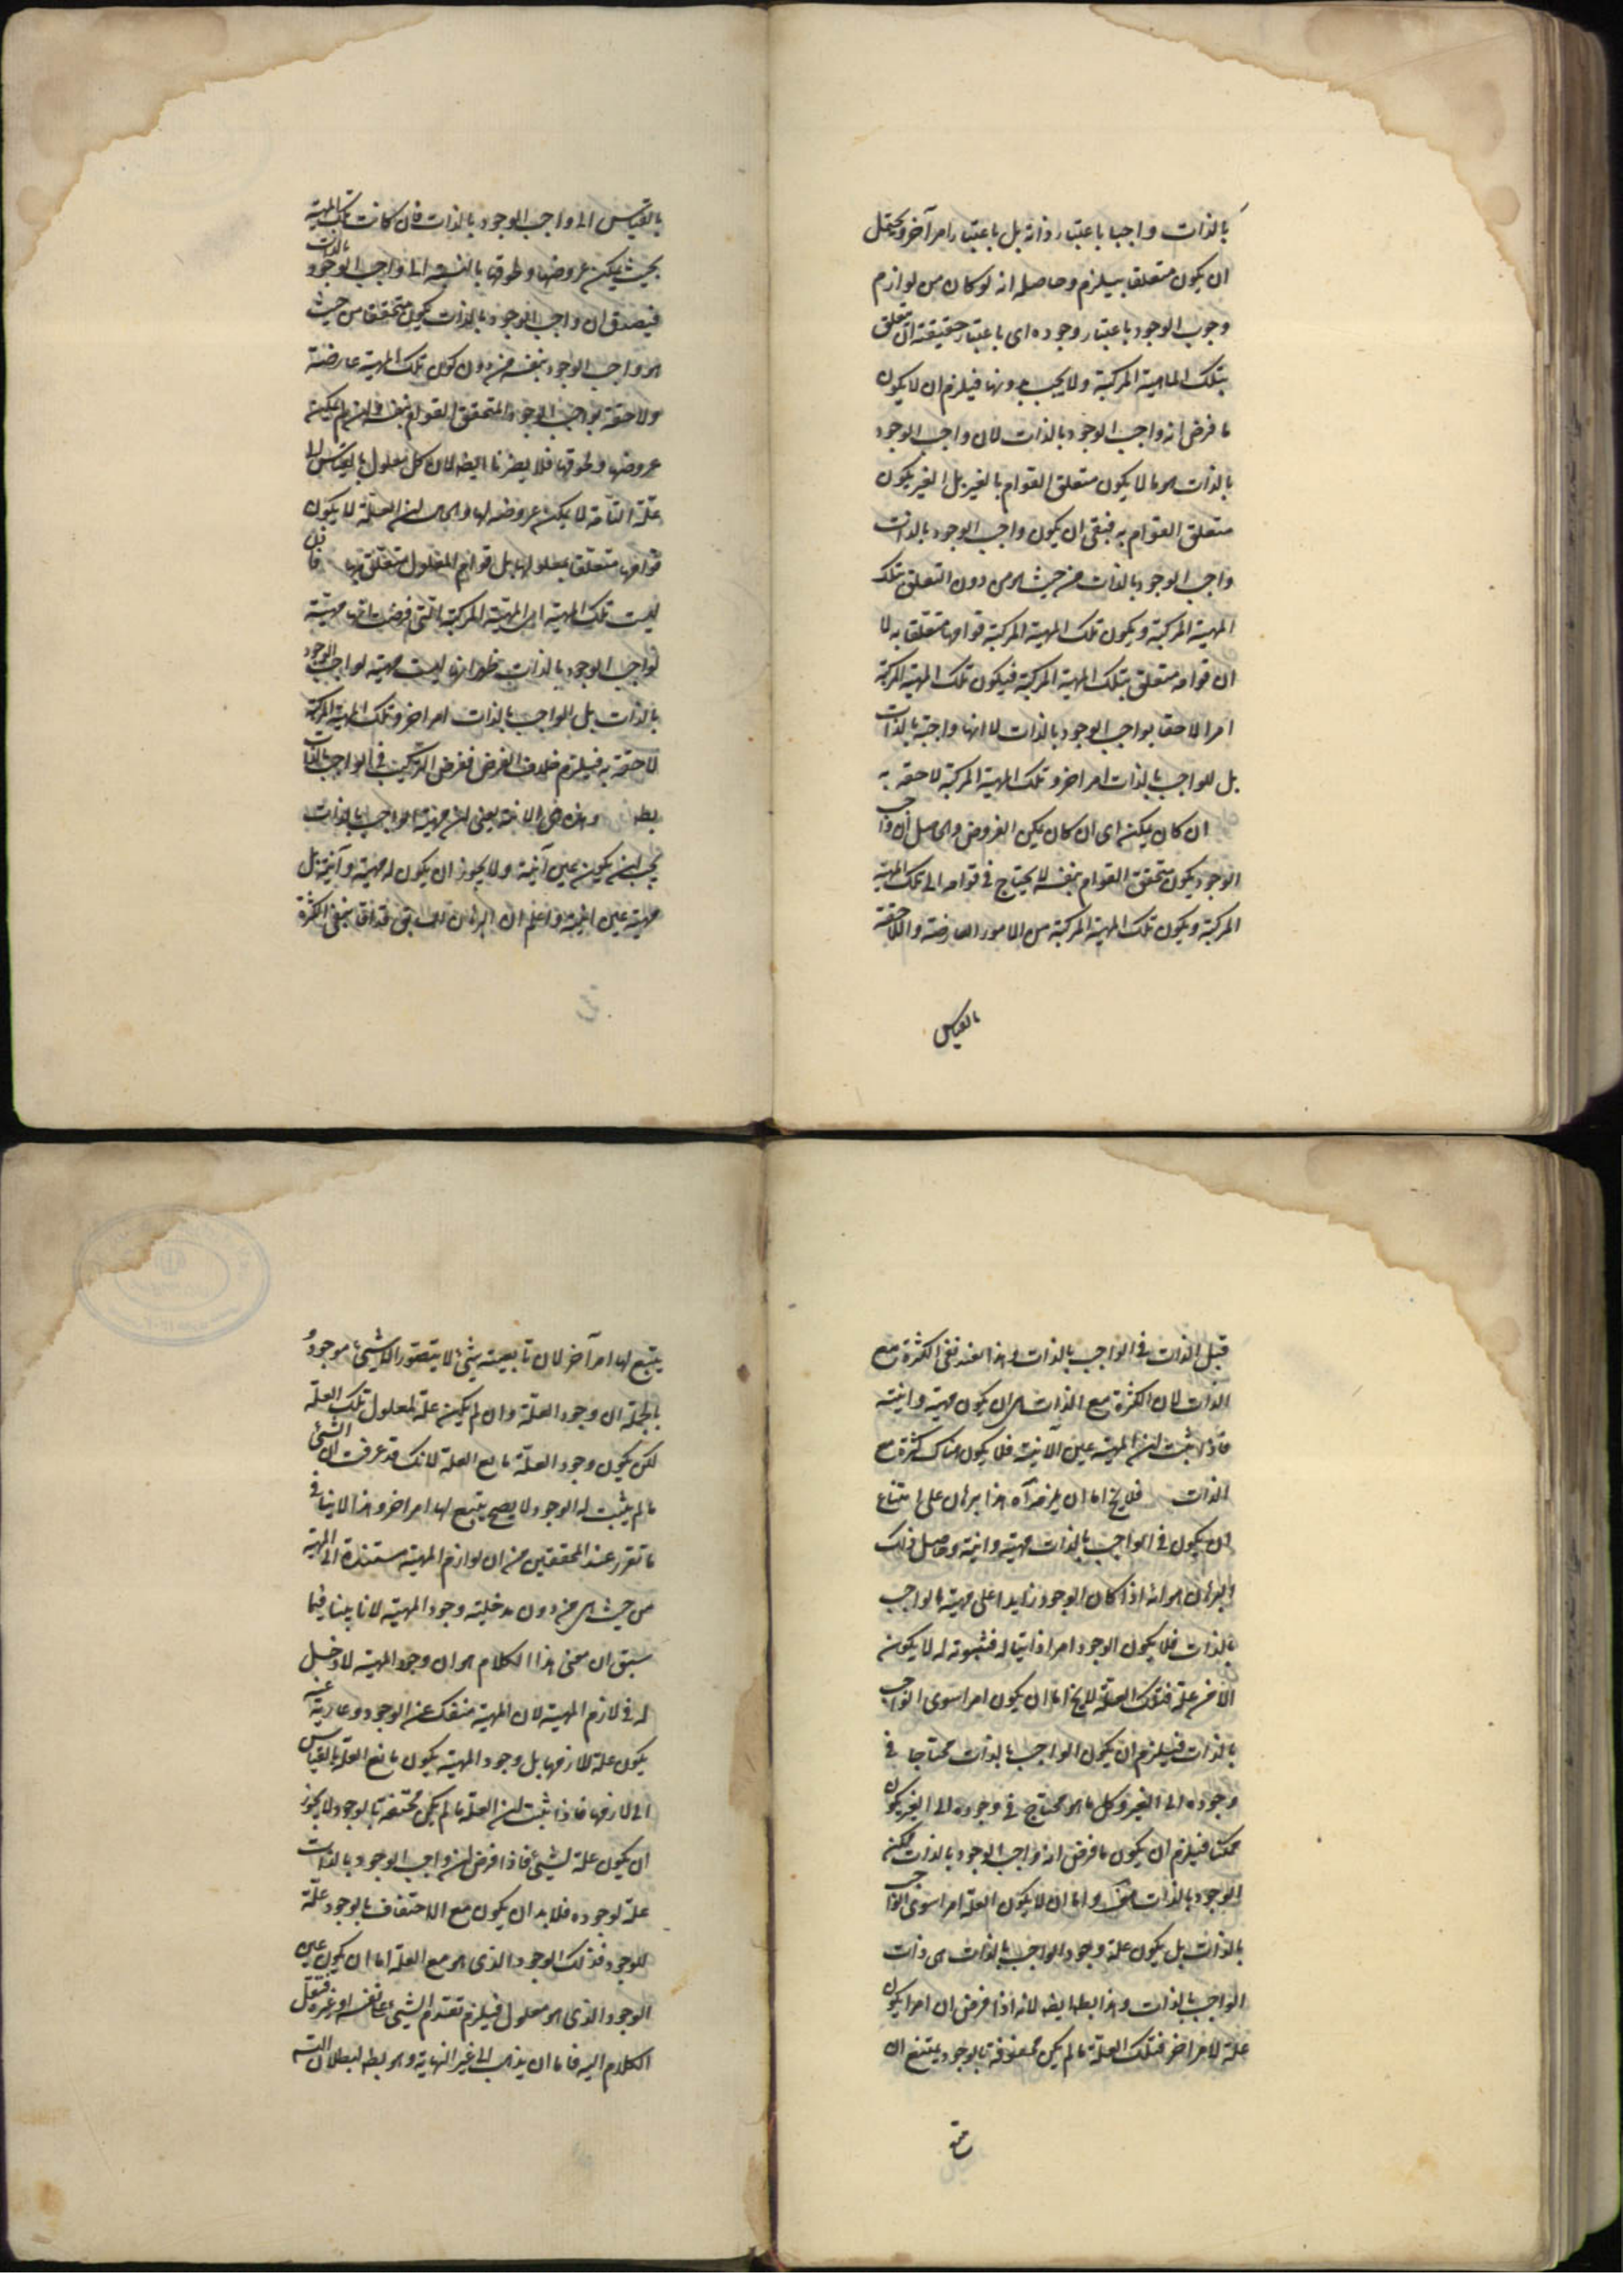 بالذات واجبا باعتبار ذاته بل باعتبار امر آخر ويحتمل
ان يكون متعلقا بيلزم وحاصله انه لو كان من لوازم
وجوب الوجود باعتبار وجوده اى باعتبار حقيقته ان تتعلق
بتلك الماهية المركبة ولا يجب بدونها فيلزم ان لا يكون
ما فرض انه واجب الوجود بالذات لان واجب الوجود
بالذات هو ما لا يكون متعلق القوام بالغير بل الغير يكون
متعلق القوام به فبقى ان يكون واجب الوجود بالذات
واجب الوجود بالذات من حيث هو من دون التعلق بتلك
المهية المركبة ويكون تلك المهية المركبة قوامها متعلقا به لا
ان قوامه متعلق بتلك المهية المركبة فيكون تلك المهية المركبة
امرا لاحقا بواجب الوجود بالذات لا انها واجبة بالذات
بل للواجب بالذات امر اخر وتلك المهية المركبة لاحقة به
ان كان يمكن اى ان كان يمكن العروض والحاصل ان واجب
الوجود يكون متحقق القوام بنفسه لا يحتاج فى قوامه الى تلك المهية
المركبة ويكون تلك المهية المركبة من الامور العارضة واللاحقة
بالقياس
بالقياس الى واجب الوجود بالذات فان كانت تلك المهية
بحيث يمكن عروضها ولحوقها بالنسبة الى واجب الوجود بالذات
فيصدق ان واجب الوجود بالذات يكون متحققا من حيث
هو واجب الوجود بنفسه من دون كون تلك المهية عارضة
ولاحقة بواجب الوجود المتحقق القوام بنفسه وان لم يمكن
عروضها ولحوقها فلا يضرنا ايضا لان كل معلول بالقياس الى
علته التامة لا يمكن عروضه لها والحاصل ان العلة لا يكون
قوامها متعلقا بمعلولها بل قوام المعلول متعلق بها فاذن
ليست تلك المهية اى المهية المركبة التى فرضت انها مهية
لواجب الوجود بالذات ظهر انها ليست مهية لواجب الوجود
بالذات بل للواجب بالذات امر اخر وتلك المهية المركبة
لاحقة به فيلزم خلاف الفرض ففرض التركيب فى الواجب بالذات
بطـ وهذه هى الانية يعنى ان مهية الواجب بالذات
يجب ان يكون عين آنية ولا يجوز ان يكون له مهية وآنية بل
مهية عين انية واعلم ان البرهان السابق قد افاد نفى الكثرة
قبل الذات فى الواجب بالذات وهذا يفيد نفى الكثرة مع
الذات لان الكثرة مع الذات هى ان يكون مهية وانية
فاذا ثبت ان المهية عين الآنية فلا يكون هناك كثرة مع
الذات فلا يخ اما ان يلزمه آه هذا برهان على امتناع
ان يكون فى الواجب بالذات مهية وانية وحاصل ذلك
البرهان هو انه اذا كان الوجود زايدا على مهية الواجب
بالذات فلا يكون الوجود امرا ذاتيا له فثبوته له لا يكون
الا من علة فتلك العلة لا يخ اما ان يكون امرا سوى الواجب
بالذات فيلزم ان يكون الواجب بالذات محتاجا فى
وجوده الى الغير وكل ما هو محتاج فى وجوده الى الغير يكون
ممكنا فيلزم ان يكون ما فرض انه واجب الوجود بالذات ممكن
الوجود بالذات هف واما ان لا يكون العلة امرا سوى الواجب
بالذات بل يكون علة وجود الواجب بالذات هى ذات
الواجب بالذات وهذا بطـ ايضا لانه اذا فرض ان امرا يكون
علة لامر اخر فتلك العلة ما لم يكن محفوفة بالوجود يمتنع ان
يتبع
يتبع لها امر آخر لان تابعيته شئ لا يتصور الا لشئ موجود
بالجملة ان وجود العلة وان لم يكن علة لمعلول تلك العلة
لكن يكون وجود العلة مانع العلة لانك قد عرفت ان الشئ
ما لم يثبت له الوجود لا يصح يتبع لها امر اخر وهذا لا ينافى
ما تقرر عند المحققين من ان لوازم المهية مستندة الى المهية
من حيث هى من دون مدخلية وجود المهية لانا بينا فيما
سبق ان معنى هذا الكلام هو ان وجود المهية لا دخل
له فى لازم المهية لان المهية منفك عن الوجود وعارية عنه
يكون علة للازمها بل وجود المهية يكون مانع العلة بالقياس
الى لازمها فاذا ثبت ان العلة ما لم يكن محتفة بالوجود لا يجوز
ان يكون علة لشئ فاذا فرض ان واجب الوجود بالذات
علة لوجوده فلا بد ان يكون مع الاحتفاف بالوجود علة
للوجود فذلك الوجود الذى هو مع العلة اما ان يكون عين
الوجود الذى هو معلول فيلزم تقدم الشئ على نفسه او غيره فننقل
الكلام اليه فاما ان يذهب الى غير النهاية وهو بطـ لبطلان التسـ